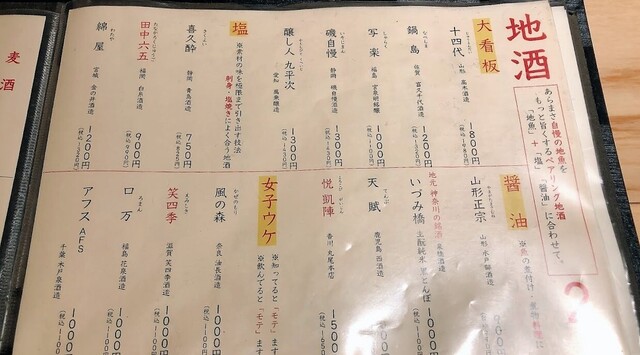 地酒
あらまさ自慢の地魚を
もっと旨くするペアリング地酒
「地魚」+「塩」「醤油」に合わせて。
大看板
十四代
山形 高木酒造
1800円
鍋島 なべしま
佐賀 富久千代酒造
1200円
写楽 しゃらく
福島 宮泉銘醸
1000円
磯自慢 いそじまん
静岡 磯自慢酒造
1300円
醸し人九平次
愛知 萬乗醸造
1300円
塩
※素材の味を極限まで引き出す技法
刺身・塩焼きによく合う地酒
喜久酔 きくよい
静岡 青島酒造
750円
田中六五
福岡 白糸酒造
900円
綿屋 わたや
宮城 金の井酒造
1200円
醤油
※魚の煮付け・煮物料理に
山形正宗
山形 水戸部酒造
900円
地元神奈川の銘酒
いづみ橋
泉橋酒造
生酛純米 黒とんぼ
1000円
天賦 てんぶ
鹿児島 西酒造
1000円
悦凱陣
香川 丸尾本店
1500円
女子ウケ
※知ってると「モテ」ます
※飲んでると「モテ」ます
風の森 かぜのもり
奈良 油長酒造
1000円
笑四季 えみしき
滋賀 笑四季酒造
1000円
ロ万 ろまん
福島 花泉酒造
1000円
(税込1100円)
アフス AFS
千葉 木戸泉酒造
麦酒